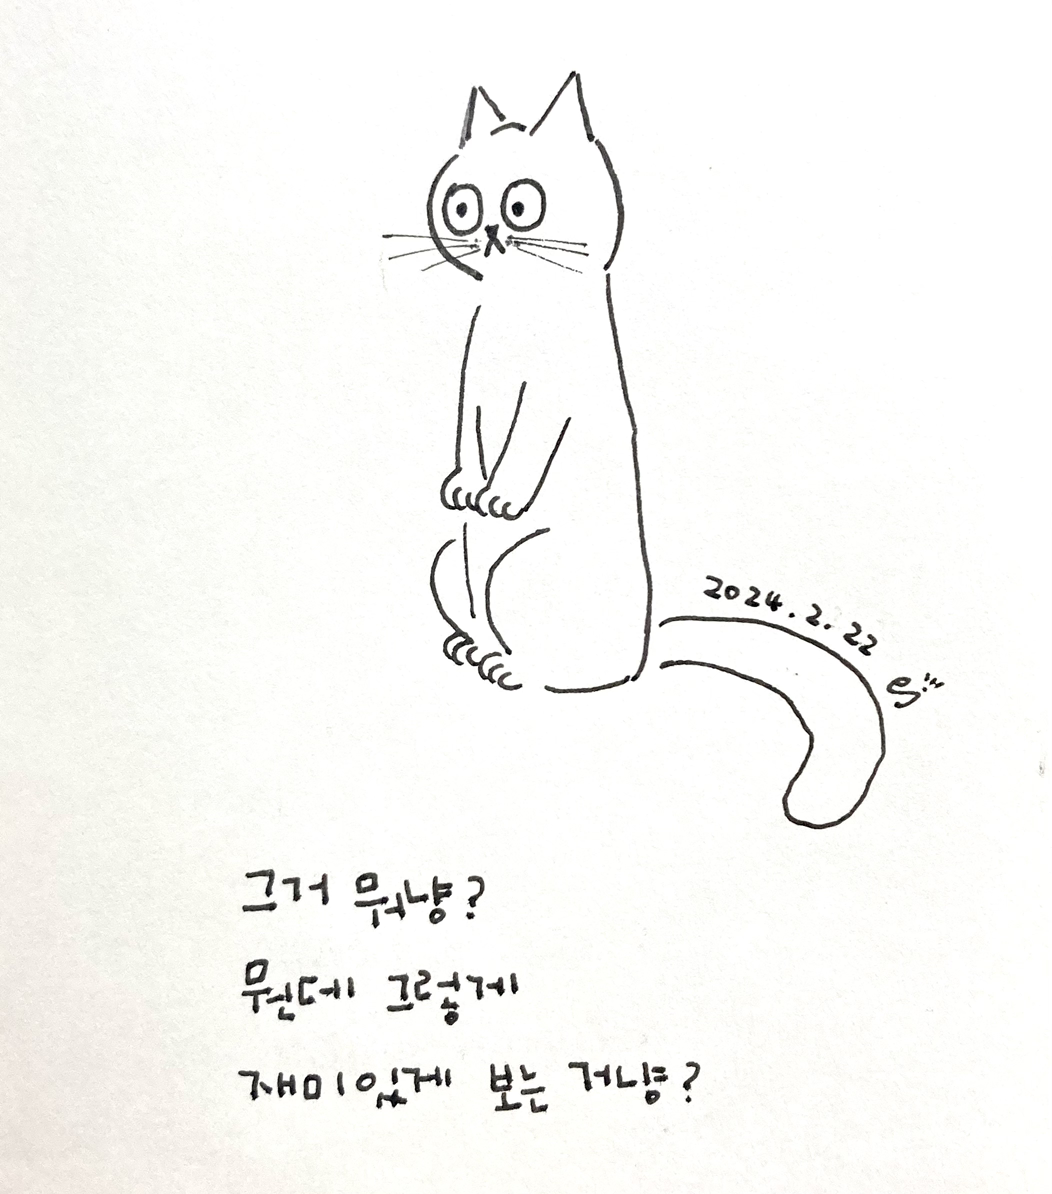 2024.2.22
그거 뭐냥?
뭔데 그렇게
재미있게 보는 거냥?